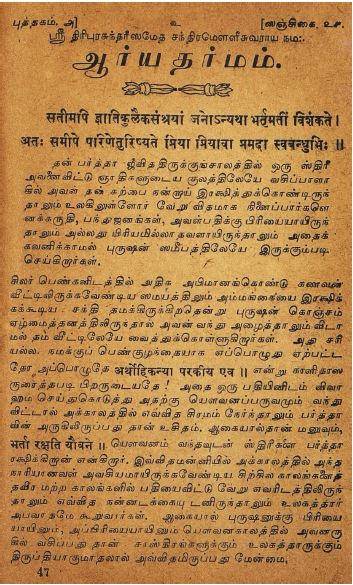 புத்தகம். அ] உ [ஸஞ்சிகை, உச.
ஸ்ரீ திரிபுரசுந்தரீஸமேத சந்திரமௌளீசுவராய நம:
ஆர்யதர்மம்.
सतीमपि ज्ञातिकुलैकसंश्रयां जनोऽन्यथा भर्तृमतीं विशंकते ।
अतः समीपे परिणेतुरिष्यते प्रिया प्रियावा प्रमदा स्वबन्धुभिः ॥
தன் பர்த்தா ஜீவித்திருக்குங்காலத்தில் ஒரு ஸ்திரீ
அவனைவிட்டு ஞாதிகளுடைய குலத்திலேயே வசிப்பாளா
கில் அவள் தன் கற்பை நன்றாய் இரக்ஷித்துக்கொண்டிருந்
தாலும் உலகிலுள்ளோர் வேறுவிதமாக நினைப்பார்களென
னக்கருதி, பந்துஜனங்கள், அவள்பதிக்கு பிரியையாயிருந்
தாலும் அல்லது பிரியமில்லாதவளாயிருந்தாலும் அதைக்
கவனிக்காமல் புருஷன் ஸமீபத்திலேயே இருக்கும்படி
செய்கிறார்கள்.
சிலர் பெண்களிடத்தில் அதிக அபிமானங்கொண்டு கணவன்
வீட்டிலிருக்கவேண்டிய ஸமயத்திலும் அம்மங்கையை இரக்ஷிக்
கக்கூடிய சக்தி தமக்கிருக்கிறதென்று புருஷன் கொஞ்சம்
ஏழ்மைத்தனத்திலிருந்தால் அவன் வந்து அழைத்தாலும்விடா
மல் தம் வீட்டிலேயே வைத்துக்கொள்ளுகிறார்கள். அது சரி
யல்ல. நமக்குப் பெண்குழந்தையாக எப்பொழுது ஏற்பட்ட
தோ அப்பொழுதே अर्थोहिकन्या परकीय एव ॥ என்று காளிதாஸ
ருரைத்தபடி பிறருடையதே! அதை ஒரு பதியினிடம் விவா
ஹம் செய்துகொடுத்து அதற்கு யௌவனப்பருவமும் வந்து
விட்டால் அக்காலத்தில் எவ்வித சிரமம் நேர்ந்தாலும் பர்த்தா
வின் அருகிலிருப்பது தான் உசிதம். ஆகையால்தான் மனுவும்,
भर्ता रक्षति यौवने ॥ யௌவனம் வந்தவுடன் ஸ்திரீகளை பர்த்தா
ரக்ஷிக்கிறான் என்கிறார். இவ்விதமன்னியில் அக்காலத்தில் அந்த
நாரியானவள் அவசியமாயிருக்கவேண்டிய சிற்சில காலங்களைத்
தவிர மற்ற காலங்களில் பதியைவிட்டு வேறு எவரிடத்திலிருந்
தாலும் எவ்வித நன்னடக்கையுடனிருந்தாலும் உலகத்தார்
அபவாதமே கூறுவார்கள். ஆகையால் புருஷனுக்கு பிரியை
யாயினும், அப்பிரியையாயினும் யௌவனகாலத்தில் அவனரு
கில் வசிப்பதுதான் சாஸ்திரங்களுக்கும் உலகத்தாருக்கும்
திருப்தியாகுமாதலால் அவ்விதமிருப்பது மேன்மை,
47